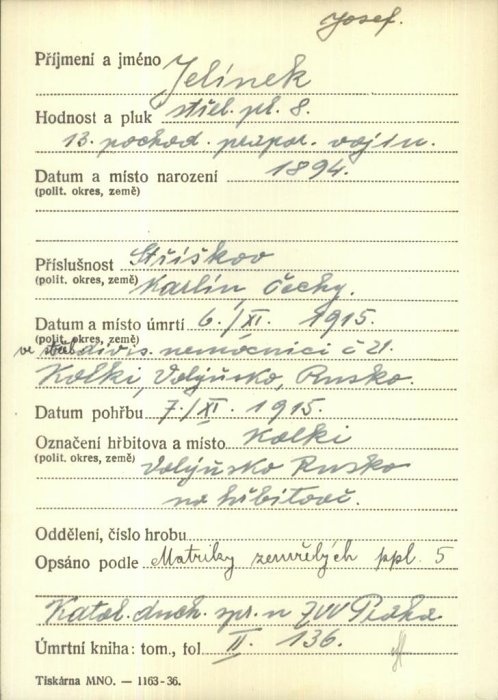 Josef.
Příjmení a jméno Jelínek
Hodnost a pluk střel. pl. 8.
13. pochod. prapor. vojín.
Datum a místo narození 1894.
(polit. okres, země)
Příslušnost Stříškov
(polit. okres, země) Karlín, Čechy.
Datum a místo úmrtí 6./XI. 1915.
(polit. okres, země)
ve divis. nemocnici č 21.
Kolki, Volýňsko, Rusko.
Datum pohřbu 7./XI. 1915.
Označení hřbitova a místo Kolki
(polit. okres, země) Volýňsko Rusko
na hřbitově.
Oddělení, číslo hrobu
Opsáno podle Matriky zemřelých ppl. 5
Katol. duch. spr. u ZVV Praha.
Úmrtní kniha: tom., fol II. 136.
Tiskárna MNO. — 1163-36.